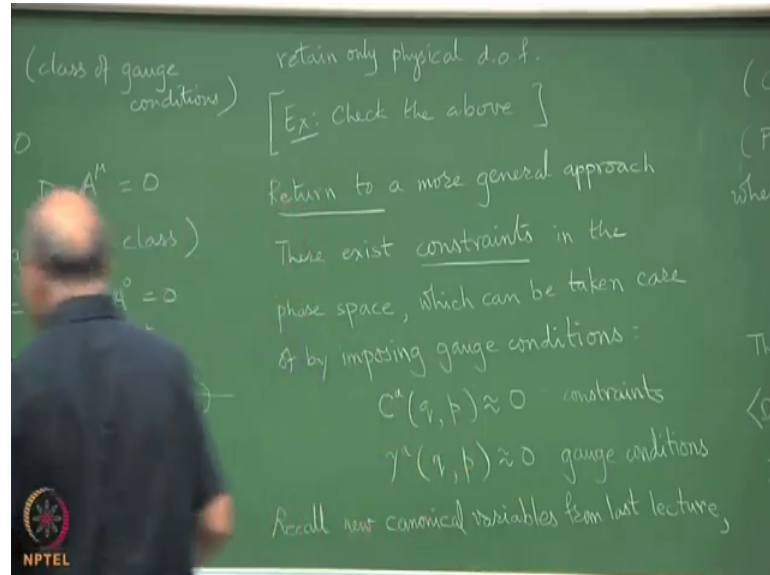 (class of gauge
conditions)
0
A^μ = 0
class)
A⁰ = 0
retain only physical d.o.f.
[Ex: Check the above]
Return to a more general approach
There exist constraints in the
phase space, which can be taken care
of by imposing gauge conditions:
C^a(q, p) ≈ 0 constraints
γ^a(q, p) ≈ 0 gauge conditions
Recall new canonical variables from last lecture,
whe
Th
NPTEL